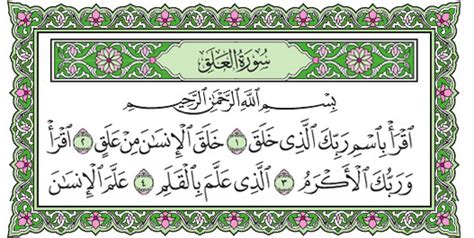 سُورَةُ العَلَقِ
بِسْمِ ٱللَّهِ ٱلرَّحْمَٰنِ ٱلرَّحِيمِ
ٱقْرَأْ بِٱسْمِ رَبِّكَ ٱلَّذِى خَلَقَ ١ خَلَقَ ٱلْإِنسَٰنَ مِنْ عَلَقٍ ٢ ٱقْرَأْ
وَرَبُّكَ ٱلْأَكْرَمُ ٣ ٱلَّذِى عَلَّمَ بِٱلْقَلَمِ ٤ عَلَّمَ ٱلْإِنسَٰنَ